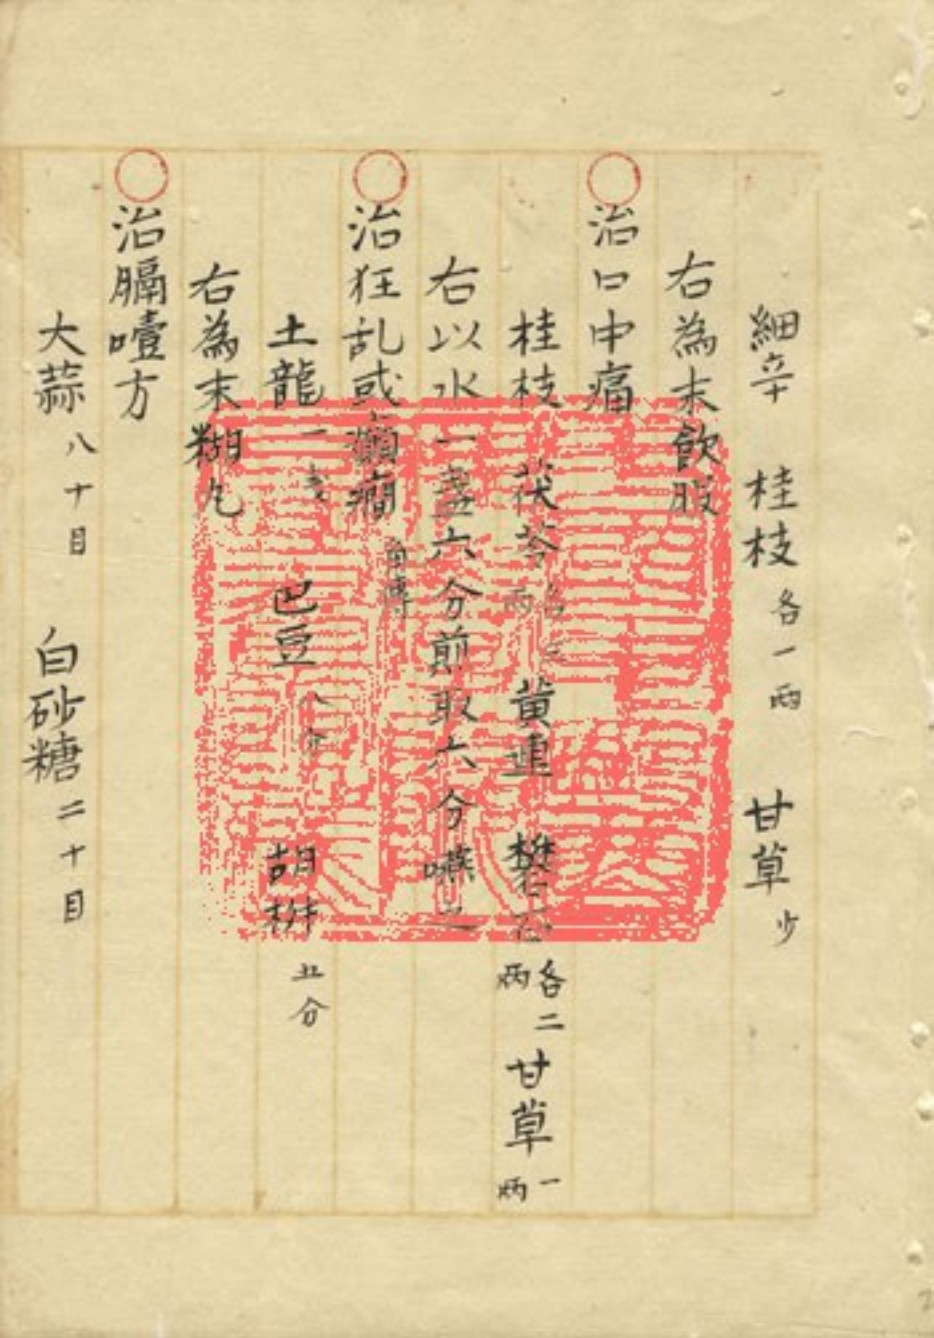 細辛 桂枝各一両 甘草少
右為末飲服
〇治口中痛
桂枝 茯苓各三両 黄連 礬石各二両 甘草一両
右以水一盞六分煎取六分嚥之
〇治狂乱或癲癇
土龍一 巴豆八分 胡椒五分
右為末糊丸
〇治膈噎方
大蒜八十目 白砂糖二十目